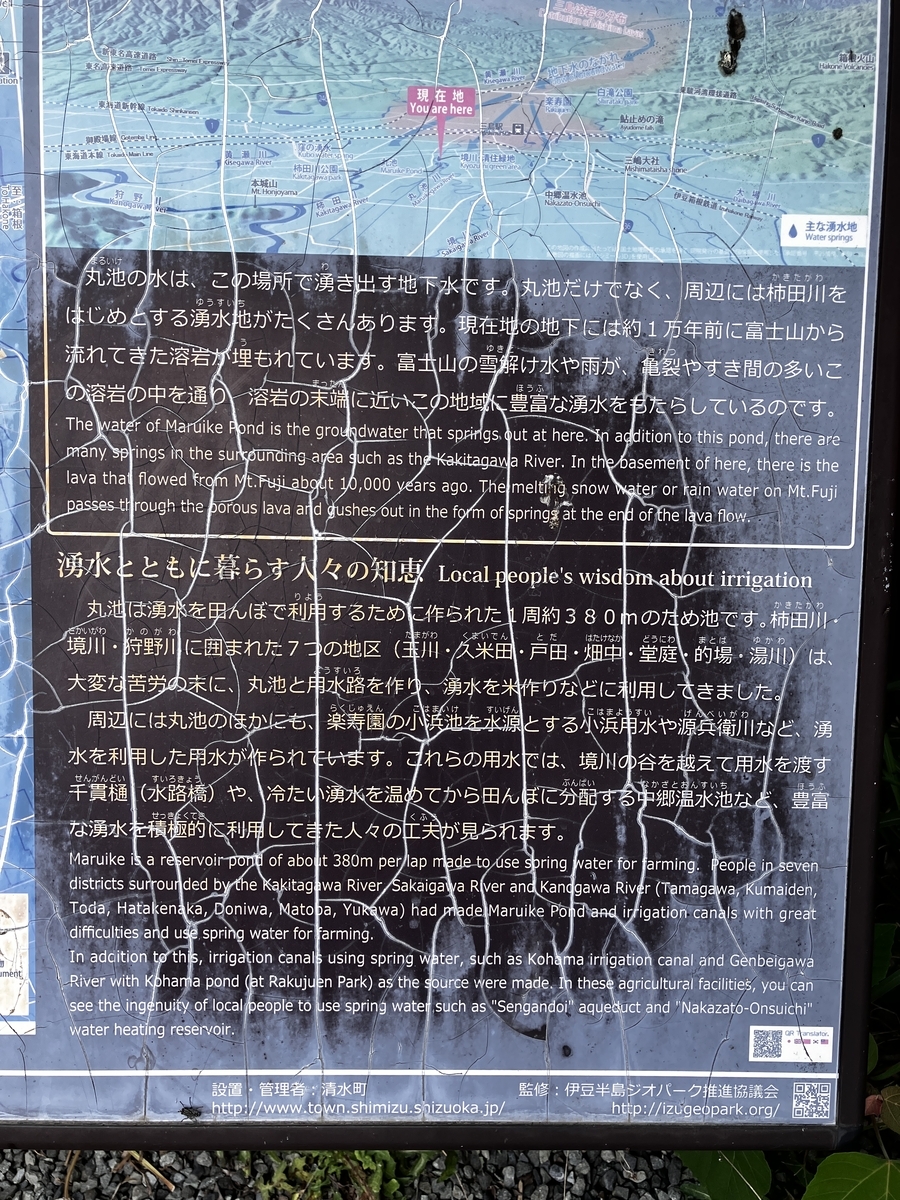 三島溶岩の分布
Distribution of Mishima Lava
新東名高速道路 Shin-Tomei Expressway
東名高速道路 Tomei Expressway
Hakone Volcanoes
現在地
You are here
白滝公園
楽寿園
東駿河湾環状道路
東海道新幹線 Tokaido Shinkansen
三島駅
鮎止めの滝
Ayudome falls
御殿場線 Gotemba Line
東海道本線 Tokaido Main Line
黄瀬川
Kisegawa River
窪の湧水
Kubo water spring
柿田川公園
Kakitagawa park
丸池
Maruike Pond
境川・清住緑地
三嶋大社
Mishimataisha shrine
本城山
Mt.Honjoyama
狩野川
Kanogawa River
柿田川
Kakitagawa River
中郷温水池
Nakazato-Onsuichi
大場川
Daibagawa River
伊豆箱根鉄道
境川
Sakaigawa River
主な湧水地
Water springs
丸池の水は、この場所で湧き出す地下水です。丸池だけでなく、周辺には柿田川を
はじめとする湧水地がたくさんあります。現在地の地下には約１万年前に富士山から
流れてきた溶岩が埋もれています。富士山の雪解け水や雨が、亀裂やすき間の多いこ
の溶岩の中を通り、溶岩の末端に近いこの地域に豊富な湧水をもたらしているのです。
The water of Maruike Pond is the groundwater that springs out at here. In addition to this pond, there are
many springs in the surrounding area such as the Kakitagawa River. In the basement of here, there is the
lava that flowed from Mt.Fuji about 10,000 years ago. The melting snow water or rain water on Mt.Fuji
passes through the porous lava and gushes out in the form of springs at the end of the lava flow.
湧水とともに暮らす人々の知恵 Local people's wisdom about irrigation
丸池は湧水を田んぼで利用するために作られた１周約３８０ｍのため池です。柿田川・
境川・狩野川に囲まれた７つの地区（玉川・久米田・戸田・畑中・堂庭・的場・湯川）は、
大変な苦労の末に、丸池と用水路を作り、湧水を米作りなどに利用してきました。
周辺には丸池のほかにも、楽寿園の小浜池を水源とする小浜用水や源兵衛川など、湧
水を利用した用水が作られています。これらの用水では、境川の谷を越えて用水を渡す
千貫樋（水路橋）や、冷たい湧水を温めてから田んぼに分配する中郷温水池など、豊富
な湧水を積極的に利用してきた人々の工夫が見られます。
Maruike is a reservoir pond of about 380m per lap made to use spring water for farming. People in seven
districts surrounded by the Kakitagawa River, Sakaigawa River and Kanogawa River (Tamagawa, Kumaiden,
Toda, Hatakenaka, Doniwa, Matoba, Yukawa) had made Maruike Pond and irrigation canals with great
difficulties and use spring water for farming.
In addction to this, irrigation canals using spring water, such as Kohama irrigation canal and Genbeigawa
River with Kohama pond (at Rakujuen Park) as the source were made. In these agricultural facilities, you can
see the ingenuity of local people to use spring water such as "Sengandoi" aqueduct and "Nakazato-Onsuichi"
water heating reservoir.
QR Translator
設置・管理者：清水町
http://www.town.shimizu.shizuoka.jp/
監修：伊豆半島ジオパーク推進協議会
http://izugeopark.org/